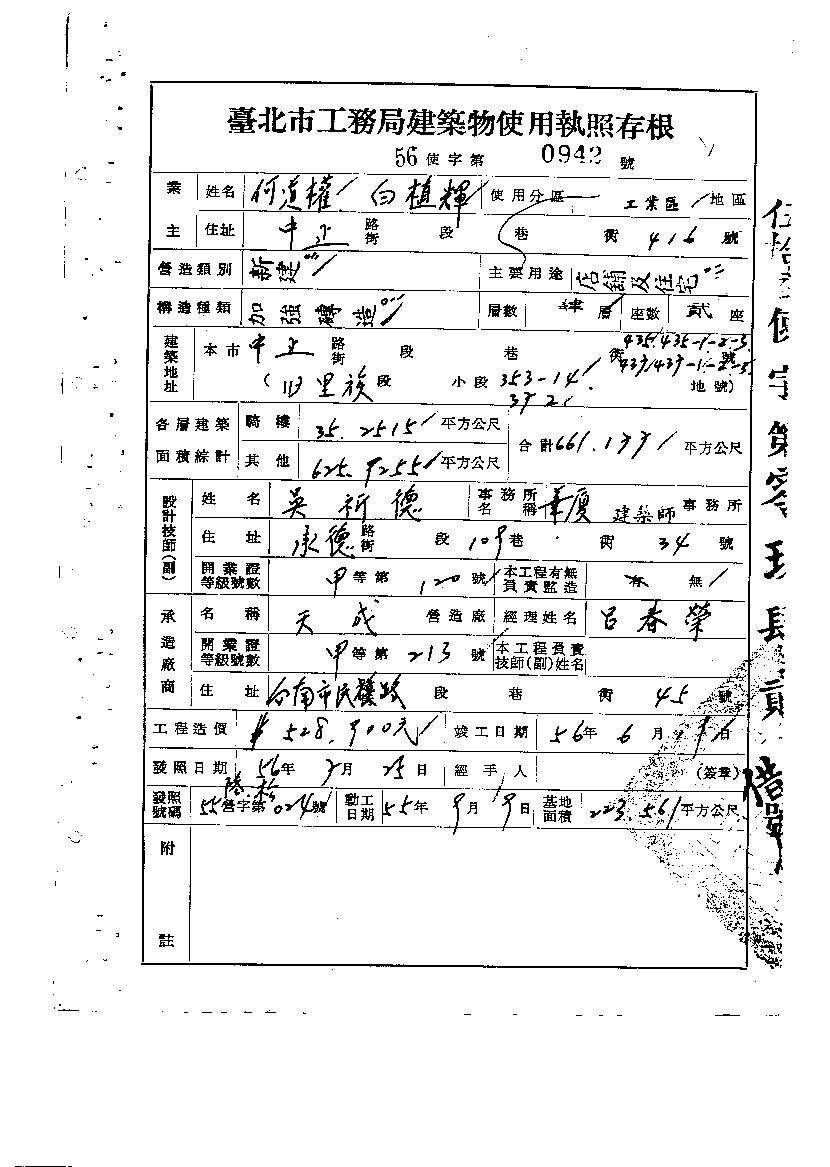 臺北市工務局建築物使用執照存根
56使字第 0942 號
業主 姓名 何道權 白植輝 使用分區 工業區 地區
住址 中正 路街 段 巷 衖 416 號
營造類別 新建 主要用途 店鋪及住宅
構造種類 加強磚造 層數 肆層 座數 貳座
建築地址 本市 中正 路街 段 巷 衖 號
(旧里族段 小段 353-14 地號)
各層建築面積綜計 騎樓 35.2515 平方公尺 合計 661.1771 平方公尺
其他 625.9255 平方公尺
設計技師(副) 姓名 吳祈德 事務所名稱 華廈 建築師 事務所
住址 承德 路街 段 109巷 衖 34 號
開業證等級號數 甲等第 120 號 本工程有無負責監造 有 無
承造廠商 名稱 天成 營造廠 經理姓名 呂春榮
開業證等級號數 甲等第 213 號 本工程負責技師(副)姓名
住址 台南市民族路 段 巷 衖 45 號
工程造價 528,900元 竣工日期 56年 6月 日
發照日期 56年 7月 25日 經手人 (簽章)
發照號碼 55營字第 024號 動工日期 55年 9月 9日 基地面積 223.561 平方公尺
附註